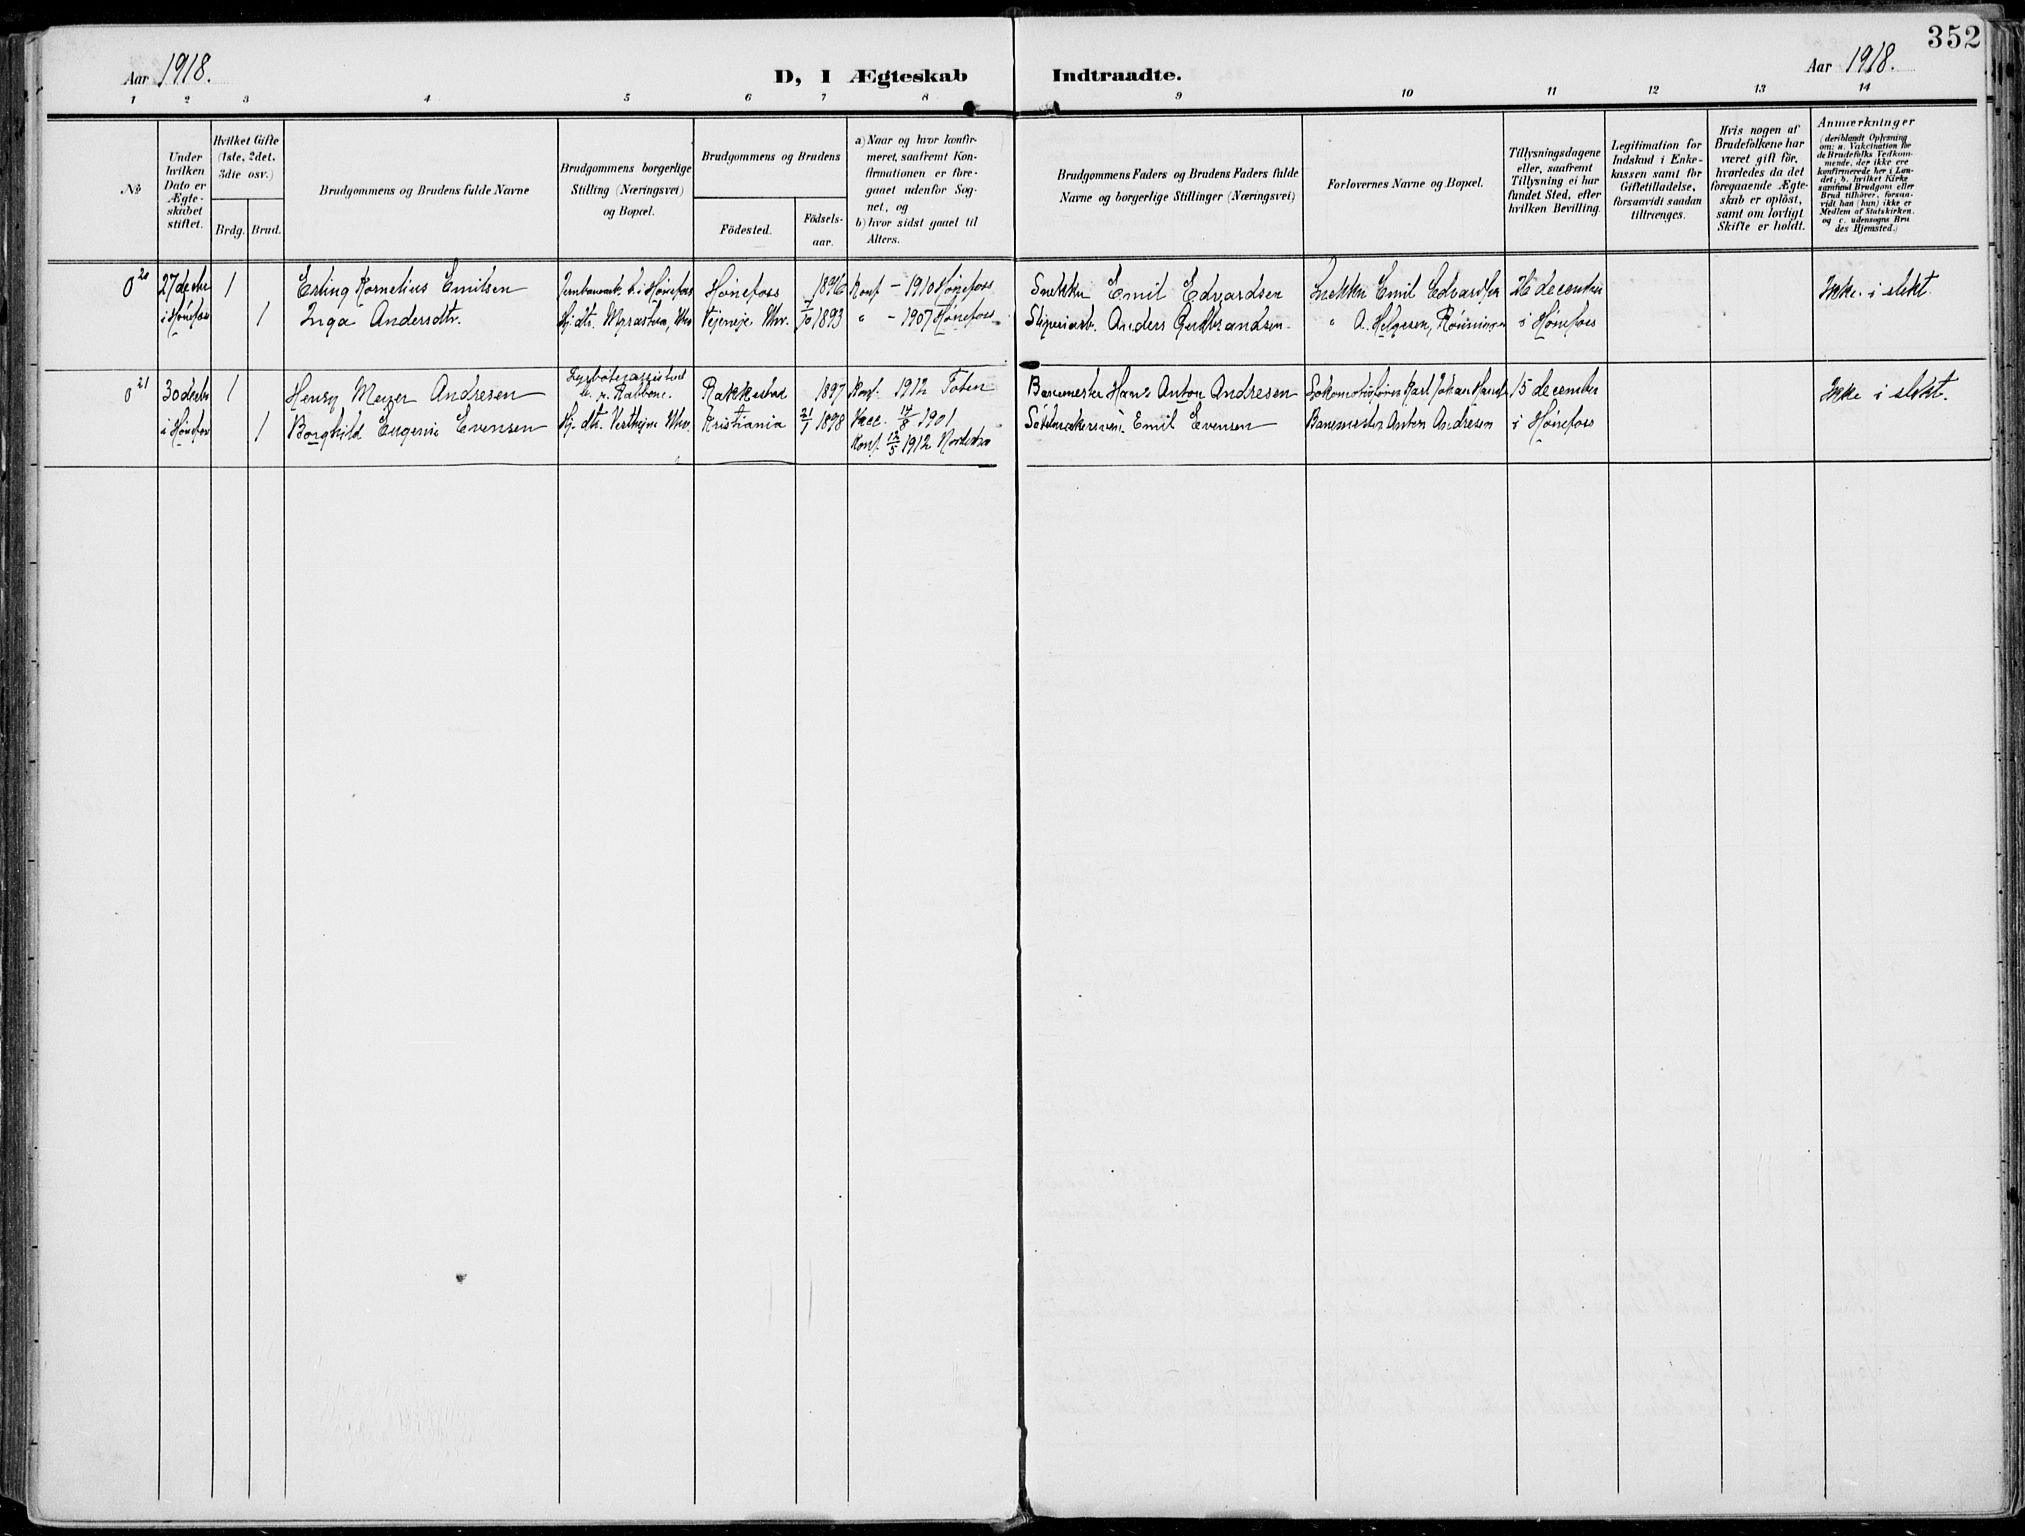 352
Aar 1918.
D, I Ægteskab Indtraadte.
Aar 1918.
1 2 3 4 5 6 7 8 9 10 11 12 13 14
No
Under hvilken Dato er Ægte-skabet stiftet.
Hvilket Gifte (1ste, 2det, 3die osv.)
Brdg. Brud.
Brudgommens og Brudens fulde Navne
Brudgommens borgerlige Stilling (Næringsvei) og Bopæl.
Brudgommens og Brudens
Födested.
Födsels-aar.
a) Naar og hvor konfir-meret, saafremt Kon-firmationen er fore-gaaet udenfor Sog-net, og
b) hvor sidst gaaet til Alters.
Brudgommens Faders og Brudens Faders fulde Navne og borgerlige Stillinger (Næringsvei)
Forlovernes Navne og Bopæl.
Tillysningsdagene eller, saafremt Tillysning ei har fundet Sted, efter hvilken Bevilling.
Legitimation for Indskud i Enke-kassen samt for Giftetilladelse, forsaavidt saadan tiltrænges.
Hvis nogen af Brudefolkene har været gift för, hvorledes da det foregaaende Ægte-skab er oplöst, samt om lovligt Skifte er holdt.
Anmærkninger
(deriblandt Oplysning om: a. Vakcination for de Brudefolks Vedkom-mende, der ikke ere konfirmerede her i Lan-det; b. hvilket Kirke-samfund Brudgom eller Brud tilhører, forsaa-vidt han (hun) ikke er Medlem af Statskirken, og c. udensogns Bru-des Hjemsted.)
0 20 27 decbr 1 Erling Kornelius Emilsen i Hønefoss Hønefoss 1896 Konf - 1910 Hønefoss Snekker Emil Edvardsen Snekker Emil Edvardsen 26 december Ikke i slekt
i Hønefoss 1 Inga Andersdtr. Hj. dtr. 7/10 1893 " - 1907 Hønefoss Anders Gudbrandsen " A. Helgesen, Rønningen i Hønefoss
0 21 30 decbr 1 Henry Meyer Andresen Rakkestad 1897 Konf. 1912 Toten Banemester Hans Anton Andresen Karl Johan 15 december Ikke i slekt.
i Hønefoss 1 Borghild Eugenie Evensen Hj. dtr. Kristiania 21/1 1898 Vacc. 17/8 1901 Emil Evensen Banemester Anton Andresen i Hønefoss
Konf. 12/5 1912